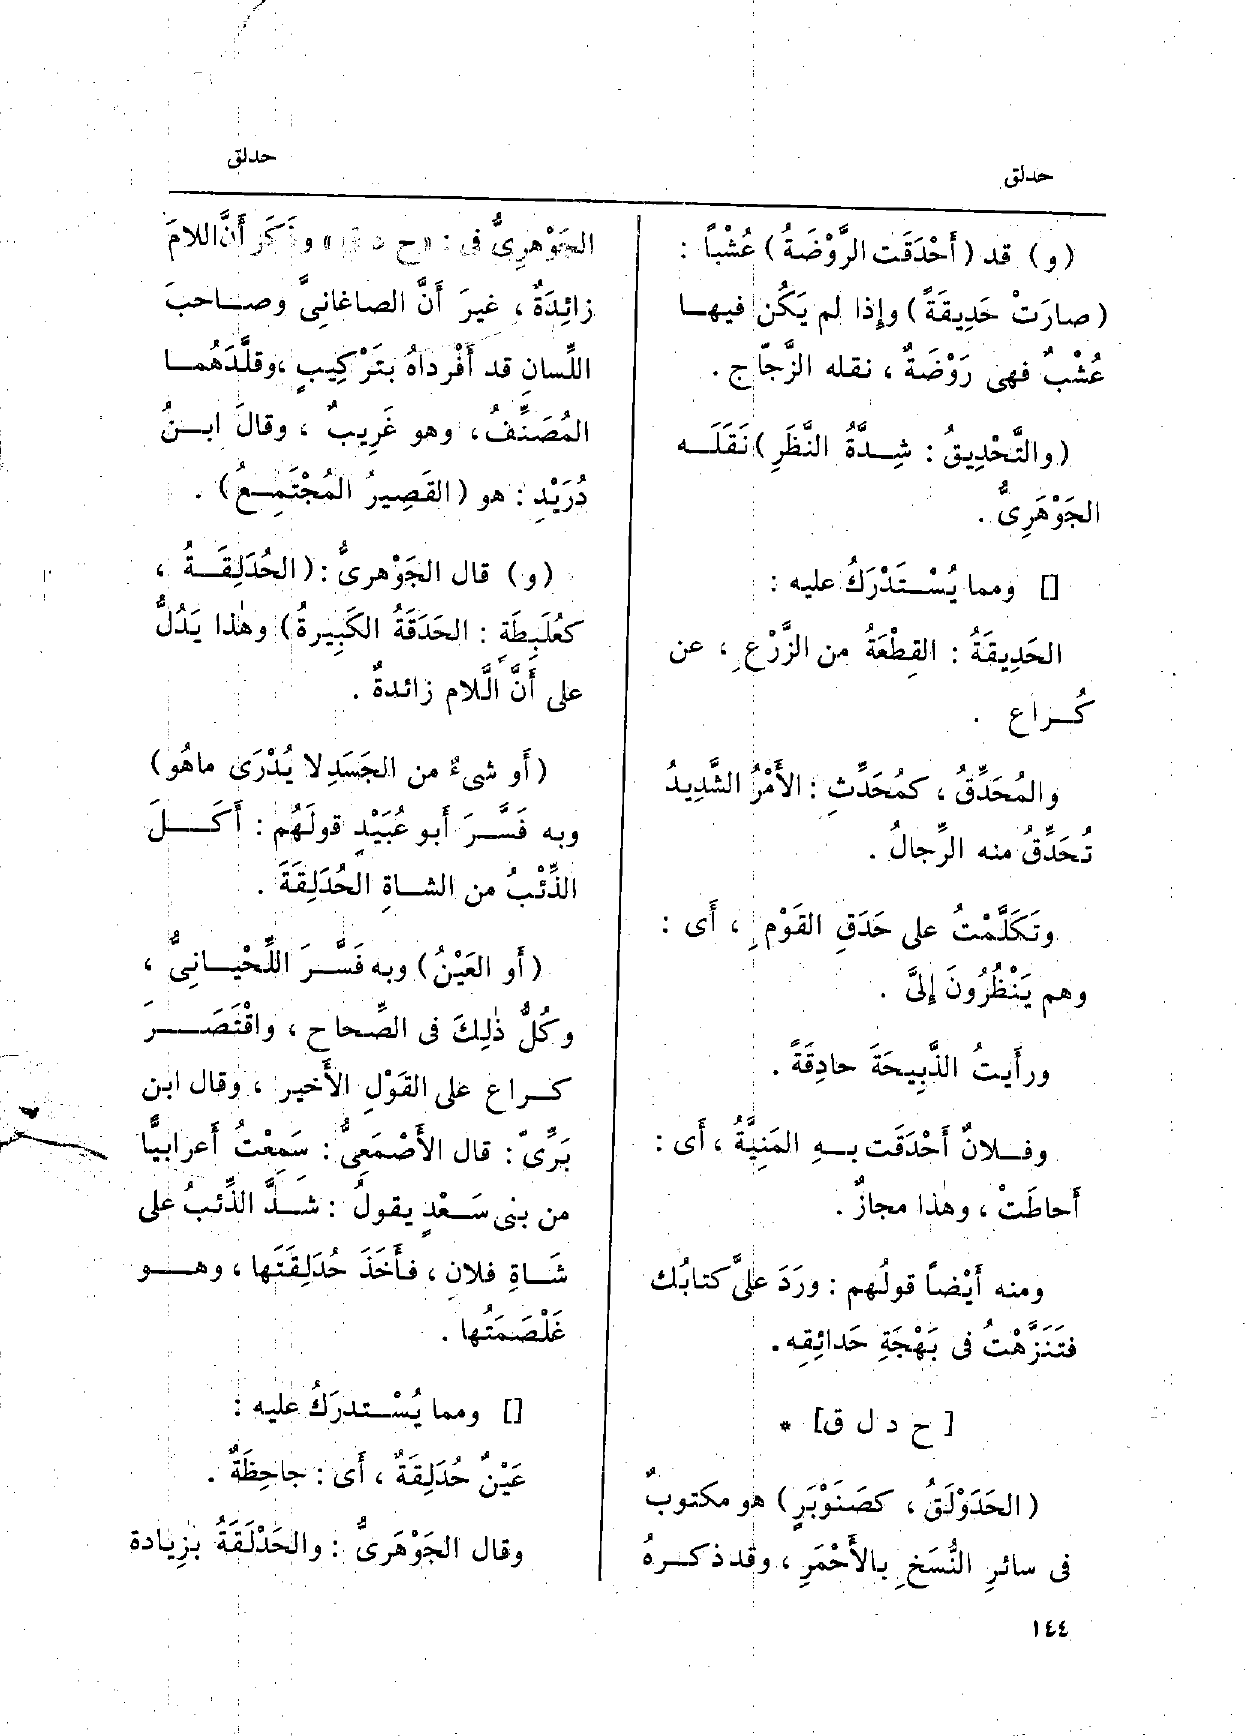 حدلق
حدلق
(و) قد (أَحْدَقَت الرَّوْضَةُ) عُشْباً :
(صارَتْ حَدِيقَةً) وإِذا لم يَكُن فيهـا
عُشْبٌ فهى رَوْضَةٌ ، نقله الزَّجّاج .
(والتَّحْدِيقُ : شِـدَّةُ النَّظَرِ) نَقَلَـه
الجَوْهَرِىُّ .
[] ومما يُسْـتَدْرَكُ عليه :
الحَدِيقَةُ : القِطْعَةُ من الزَّرْعِ ، عن
كُـراع .
والمُحَدِّقُ ، كمُحَدِّثٍ : الأَمْرُ الشَّدِيدُ
تُحَدِّقُ منه الرِّجالُ .
وتَكَلَّمْتُ على حَدَقِ القَوْمِ ، أَى :
وهم يَنْظُرُونَ إِلىَّ .
ورأَيتُ الذَّبِيحَةَ حادِقَةً .
وفـلانٌ أَحْدَقَت بـهِ المَنِيَّةُ ، أَى :
أَحاطَتْ ، وهٰذا مجازٌ .
ومنه أَيْضاً قولُهم : ورَدَ علىَّ كتابُك
فتَنَزَّهْتُ فى بَهْجَةِ حَدائِقِه .
[ ح د ل ق] *
(الحَدَوْلَقُ ، كصَنَوْبَرٍ) هو مكتوبٌ
فى سائرِ النُّسَخِ بالأَحْمَرِ ، وقد ذكـرهُ
الجَوْهَرِىُّ فى : «ح د ق» وذَكَر أَنَّ اللامَ
زائِدَةٌ ، غيرَ أَنَّ الصاغانِىَّ وصـاحبَ
اللِّسانِ قد أَفْرداهُ بتَرْكِيبٍ ، وقلَّدَهُمـا
المُصَنِّفُ ، وهو غَرِيبٌ ، وقالَ ابـنُ
دُرَيْدٍ : هو (القَصِيرُ المُجْتَمِـعُ) .
(و) قال الجَوْهرىُّ : (الحُدَلِقَـةُ ،
كعُلَبِطَةٍ : الحَدَقَةُ الكَبِيرةُ) وهٰذا يَدُلُّ
على أَنَّ الَّلام زائدةٌ .
(أَو شىءٌ من الجَسَدِ لا يُدْرَى ماهُو)
وبه فَسَّـرَ أَبو عُبَيْدٍ قولَهُم : أَكَـلَ
الذِّئْبُ من الشـاةِ الحُدَلِقَةَ .
(أَو العَيْنُ) وبه فَسَّـرَ اللِّحْيـانِىُّ ،
وكُلُّ ذٰلِكَ فى الصِّحاح ، واقْتَصَـرَ
كـراع على القَوْلِ الأَخير ، وقال ابن
بَرِّىّ : قال الأَصْمَعِىُّ : سَمِعْتُ أَعرابيًّا
من بنى سَـعْدٍ يقولُ : شَـدَّ الذِّئبُ على
شَـاةِ فلان ، فـأَخَذَ حُدَلِقَتَها ، وهـو
غَلْصَمَتُها .
[] ومما يُسْـتدرَكُ عليه :
عَيْنٌ حُدَلِقَةٌ ، أَى : جاحِظَةٌ .
وقال الجَوْهَرِىُّ : والحَدْلَقَةُ بزِيادة
١٤٤